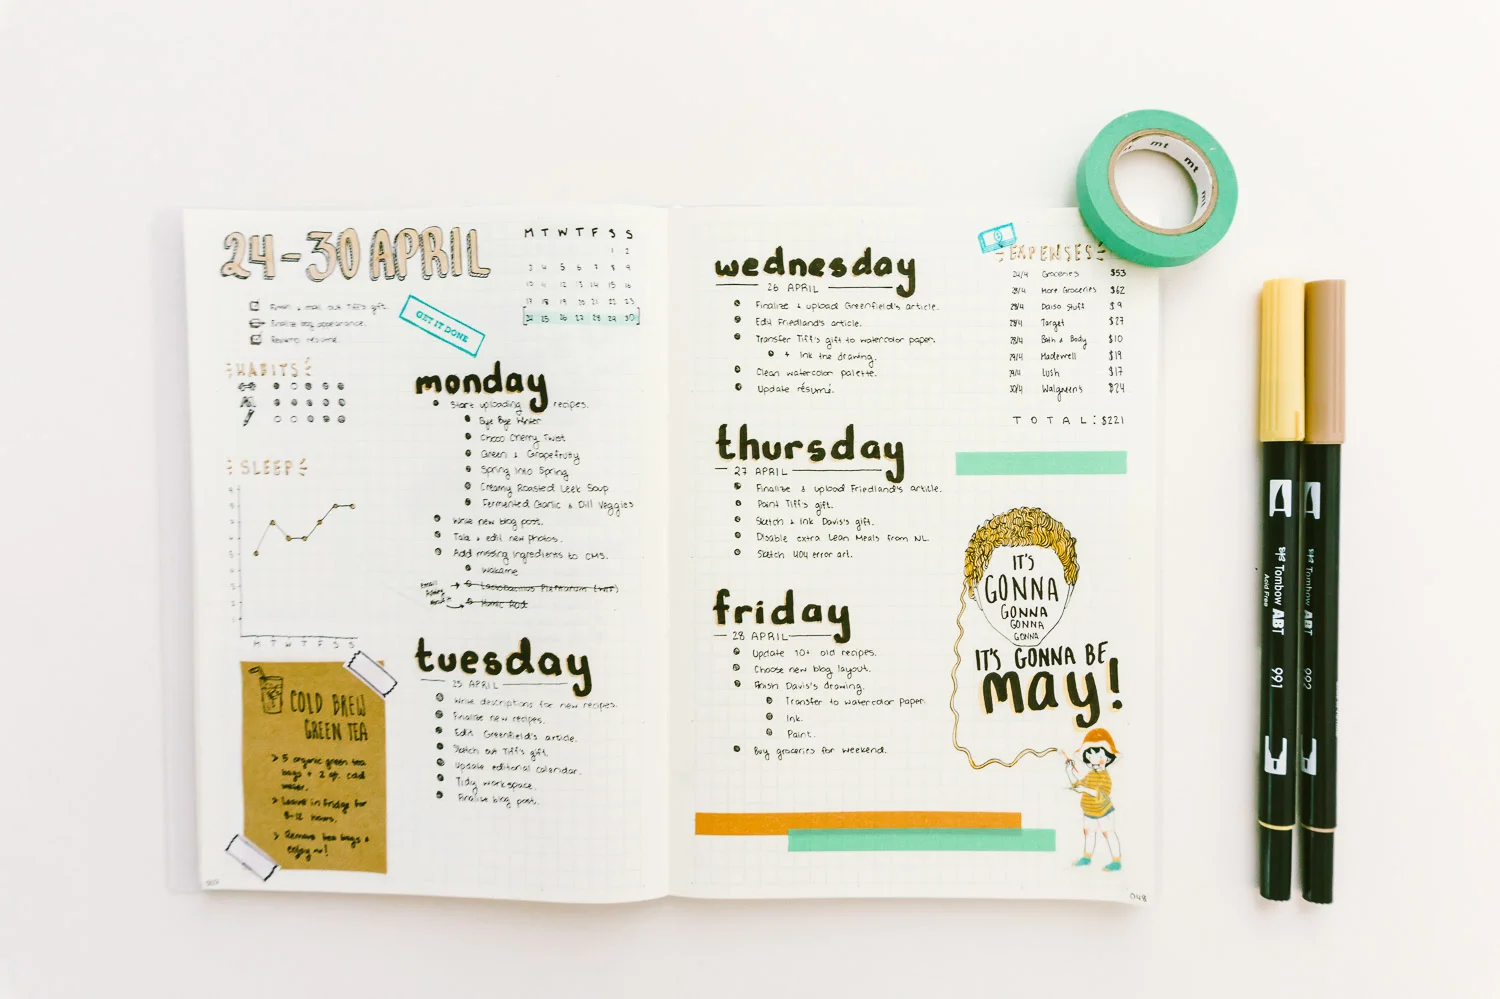 24-30 APRIL
M T W T F S S
1 2
3 4 5 6 7 8 9
10 11 12 13 14 15 16
17 18 19 20 21 22 23
24 25 26 27 28 29 30
Finish & mail out Tiff's gift.
Finalize appearance.
résumé.
GET IT DONE
HABITS
SLEEP
M T W T F S S
COLD BREW
GREEN TEA
> 5 organic green tea
bags + 2 qt. cold
water.
> Leave in fridge for
8-12 hours.
> Remove tea bags &
enjoy ~!
monday
Start uploading recipes.
Bye Bye Winter
Choco Cherry Twist
Green & Grapefruity
Spring Into Spring
Creamy Roasted Leek Soup
Fermented Garlic & Dill Veggies
Write new blog post.
Take & edit new photos.
Add missing ingredients to CMS.
Wakame
Lactobacillus Plantarum
tuesday
25 APRIL
Write descriptions for new recipes.
Finalize new recipes.
Edit Greenfield's article.
Sketch out Tiff's gift.
Update editorial calendar.
Tidy workspace.
Finalize blog post.
wednesday
26 APRIL
Finalize & upload Greenfield's article.
Edit Friedland's article.
Transfer Tiff's gift to watercolor paper.
+ Ink the drawing.
Clean watercolor palette.
Update résumé.
thursday
27 APRIL
Finalize & upload Friedland's article.
Paint Tiff's gift.
Sketch & ink Davis's gift.
Disable extra Lean Meals from NL.
Sketch 404 error art.
friday
28 APRIL
Update 10+ old recipes.
Choose new blog layout.
Finish Davis's drawing.
Transfer to watercolor paper.
Ink.
Paint.
Buy groceries for weekend.
EXPENSES
24/4 Groceries $53
More Groceries $62
Daiso Stuff $9
Target $27
Bath & Body $10
29/4 Madewell $19
29/4 Lush $17
30/4 Walgreens $24
TOTAL: $221
IT'S
GONNA
GONNA
GONNA
GONNA
IT'S GONNA BE
may!
048
mt mt mt
Tombow ABT 991
Acid Free
Tombow ABT 992